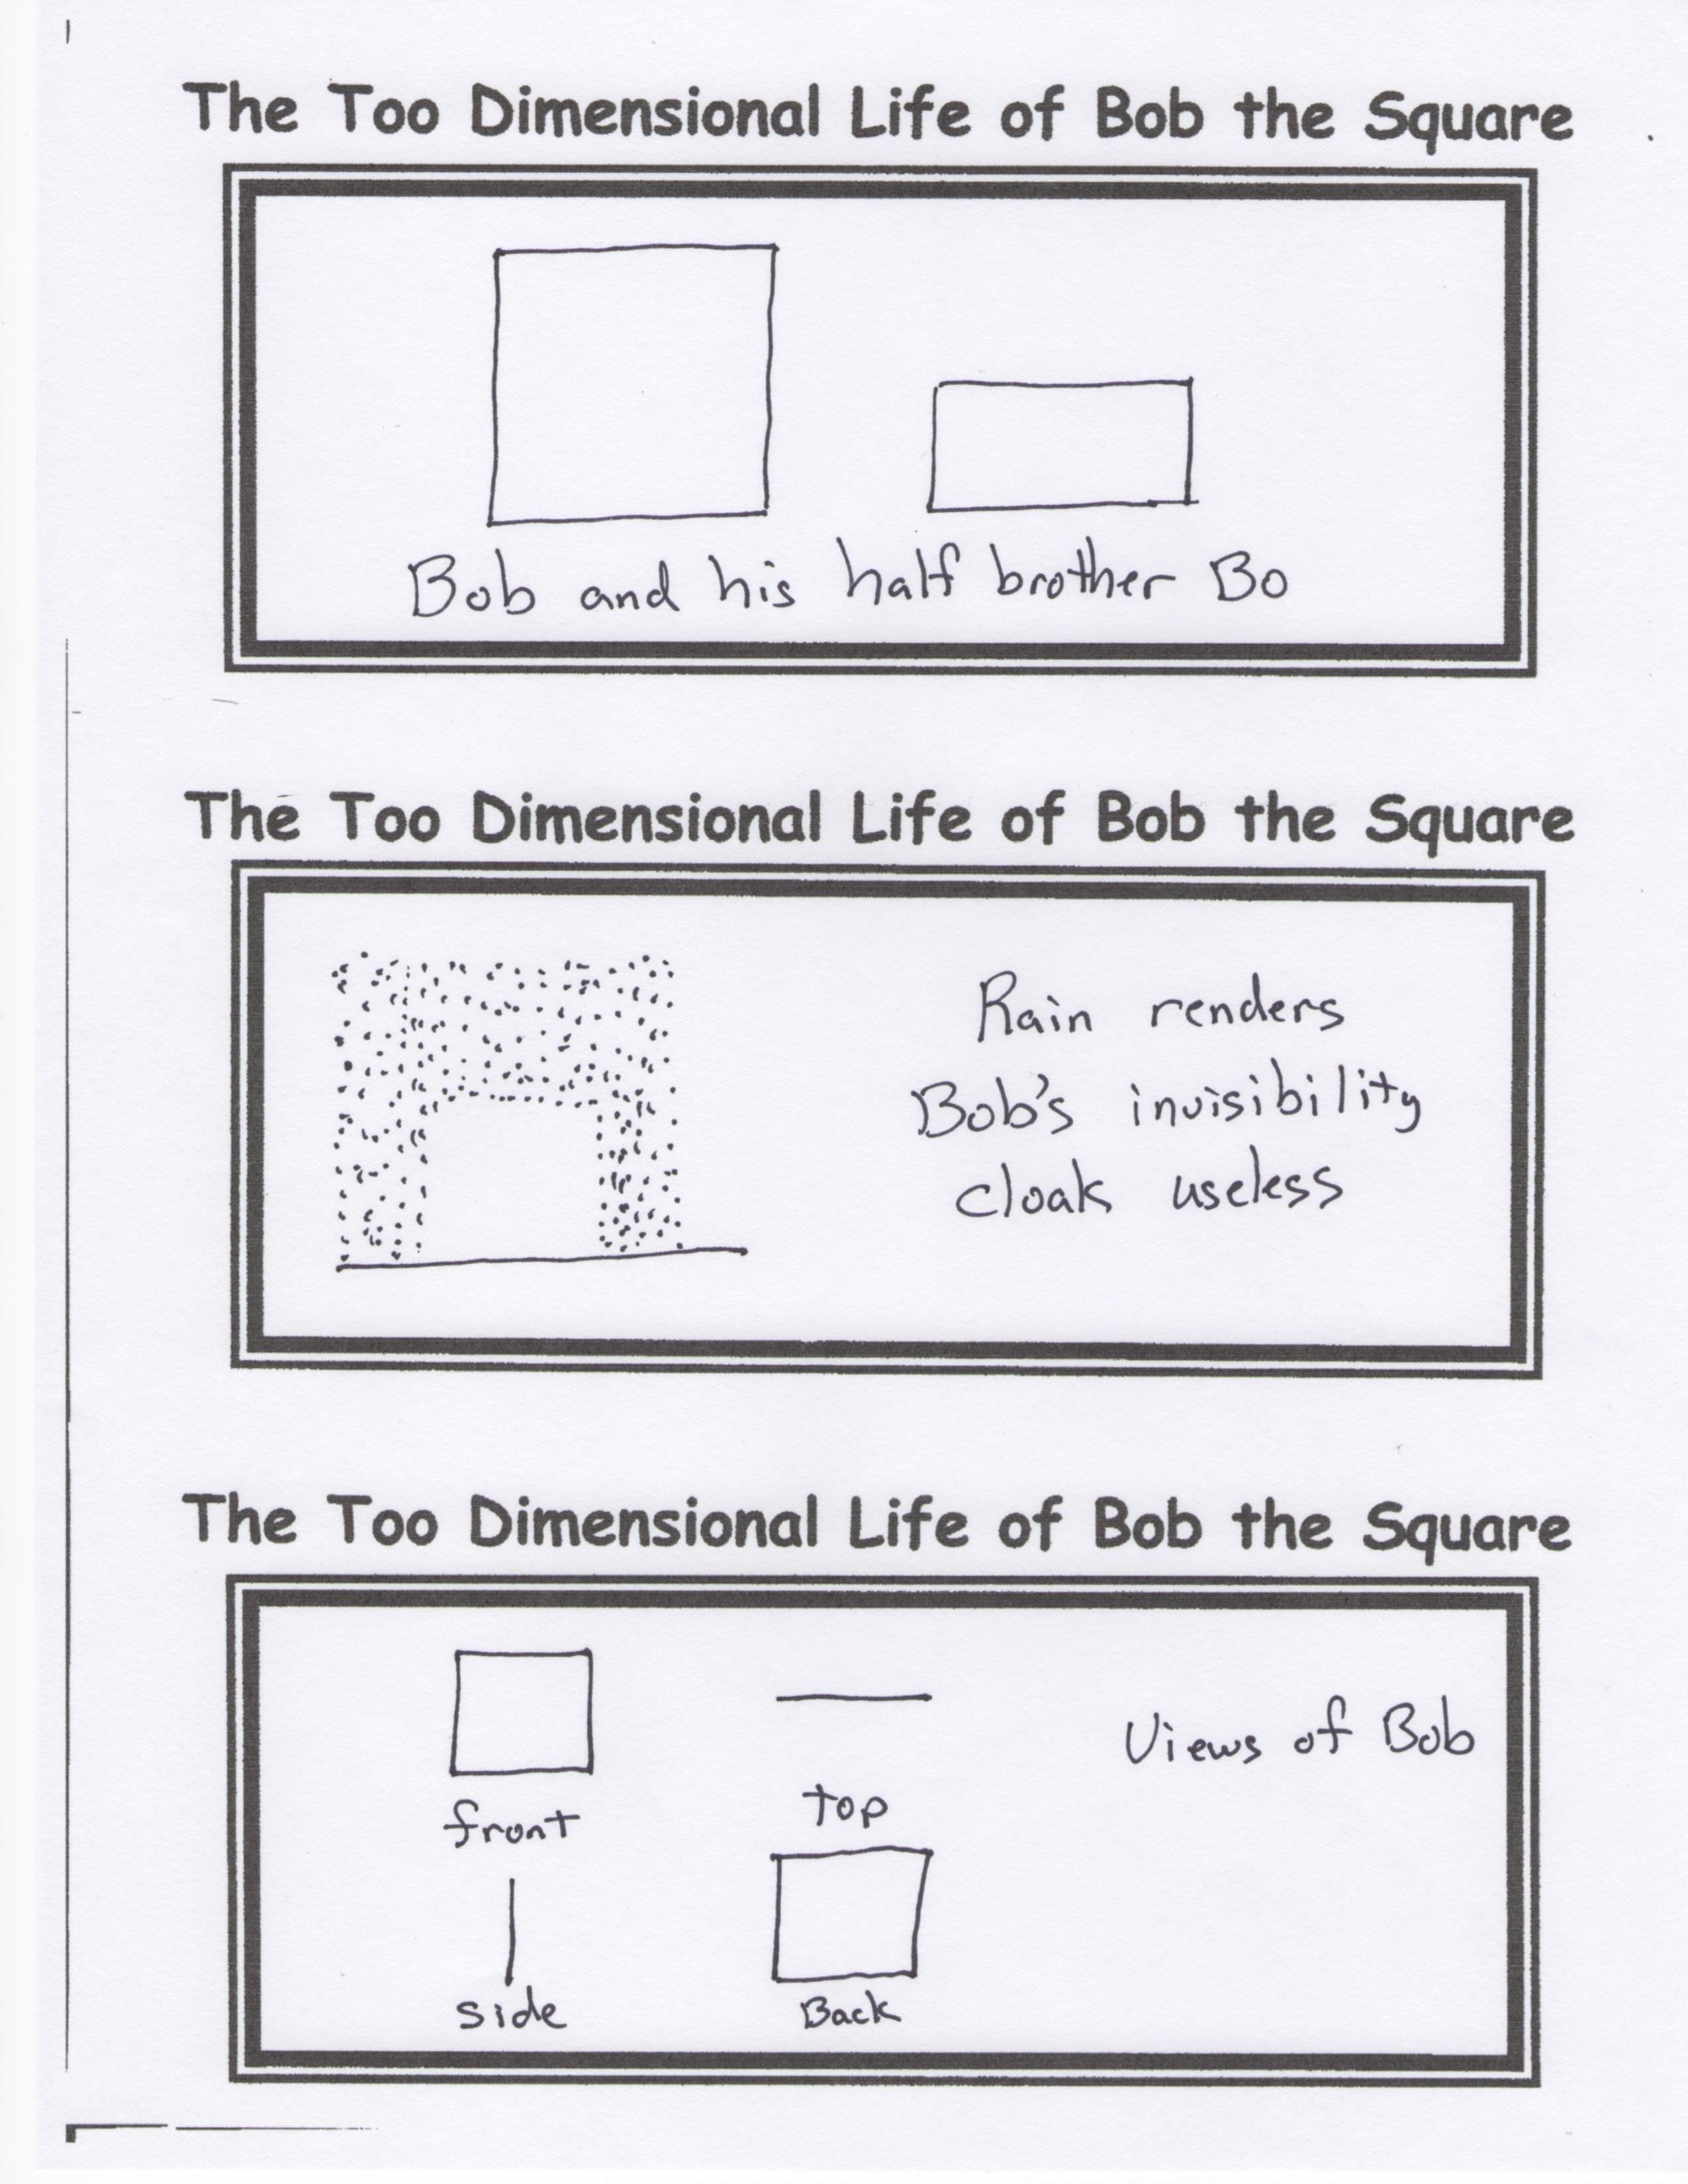 The Too Dimensional Life of Bob the Square
Bob and his half brother Bo
The Too Dimensional Life of Bob the Square
Rain renders
Bob's invisibility
cloak useless
The Too Dimensional Life of Bob the Square
Views of Bob
front
top
side
Back